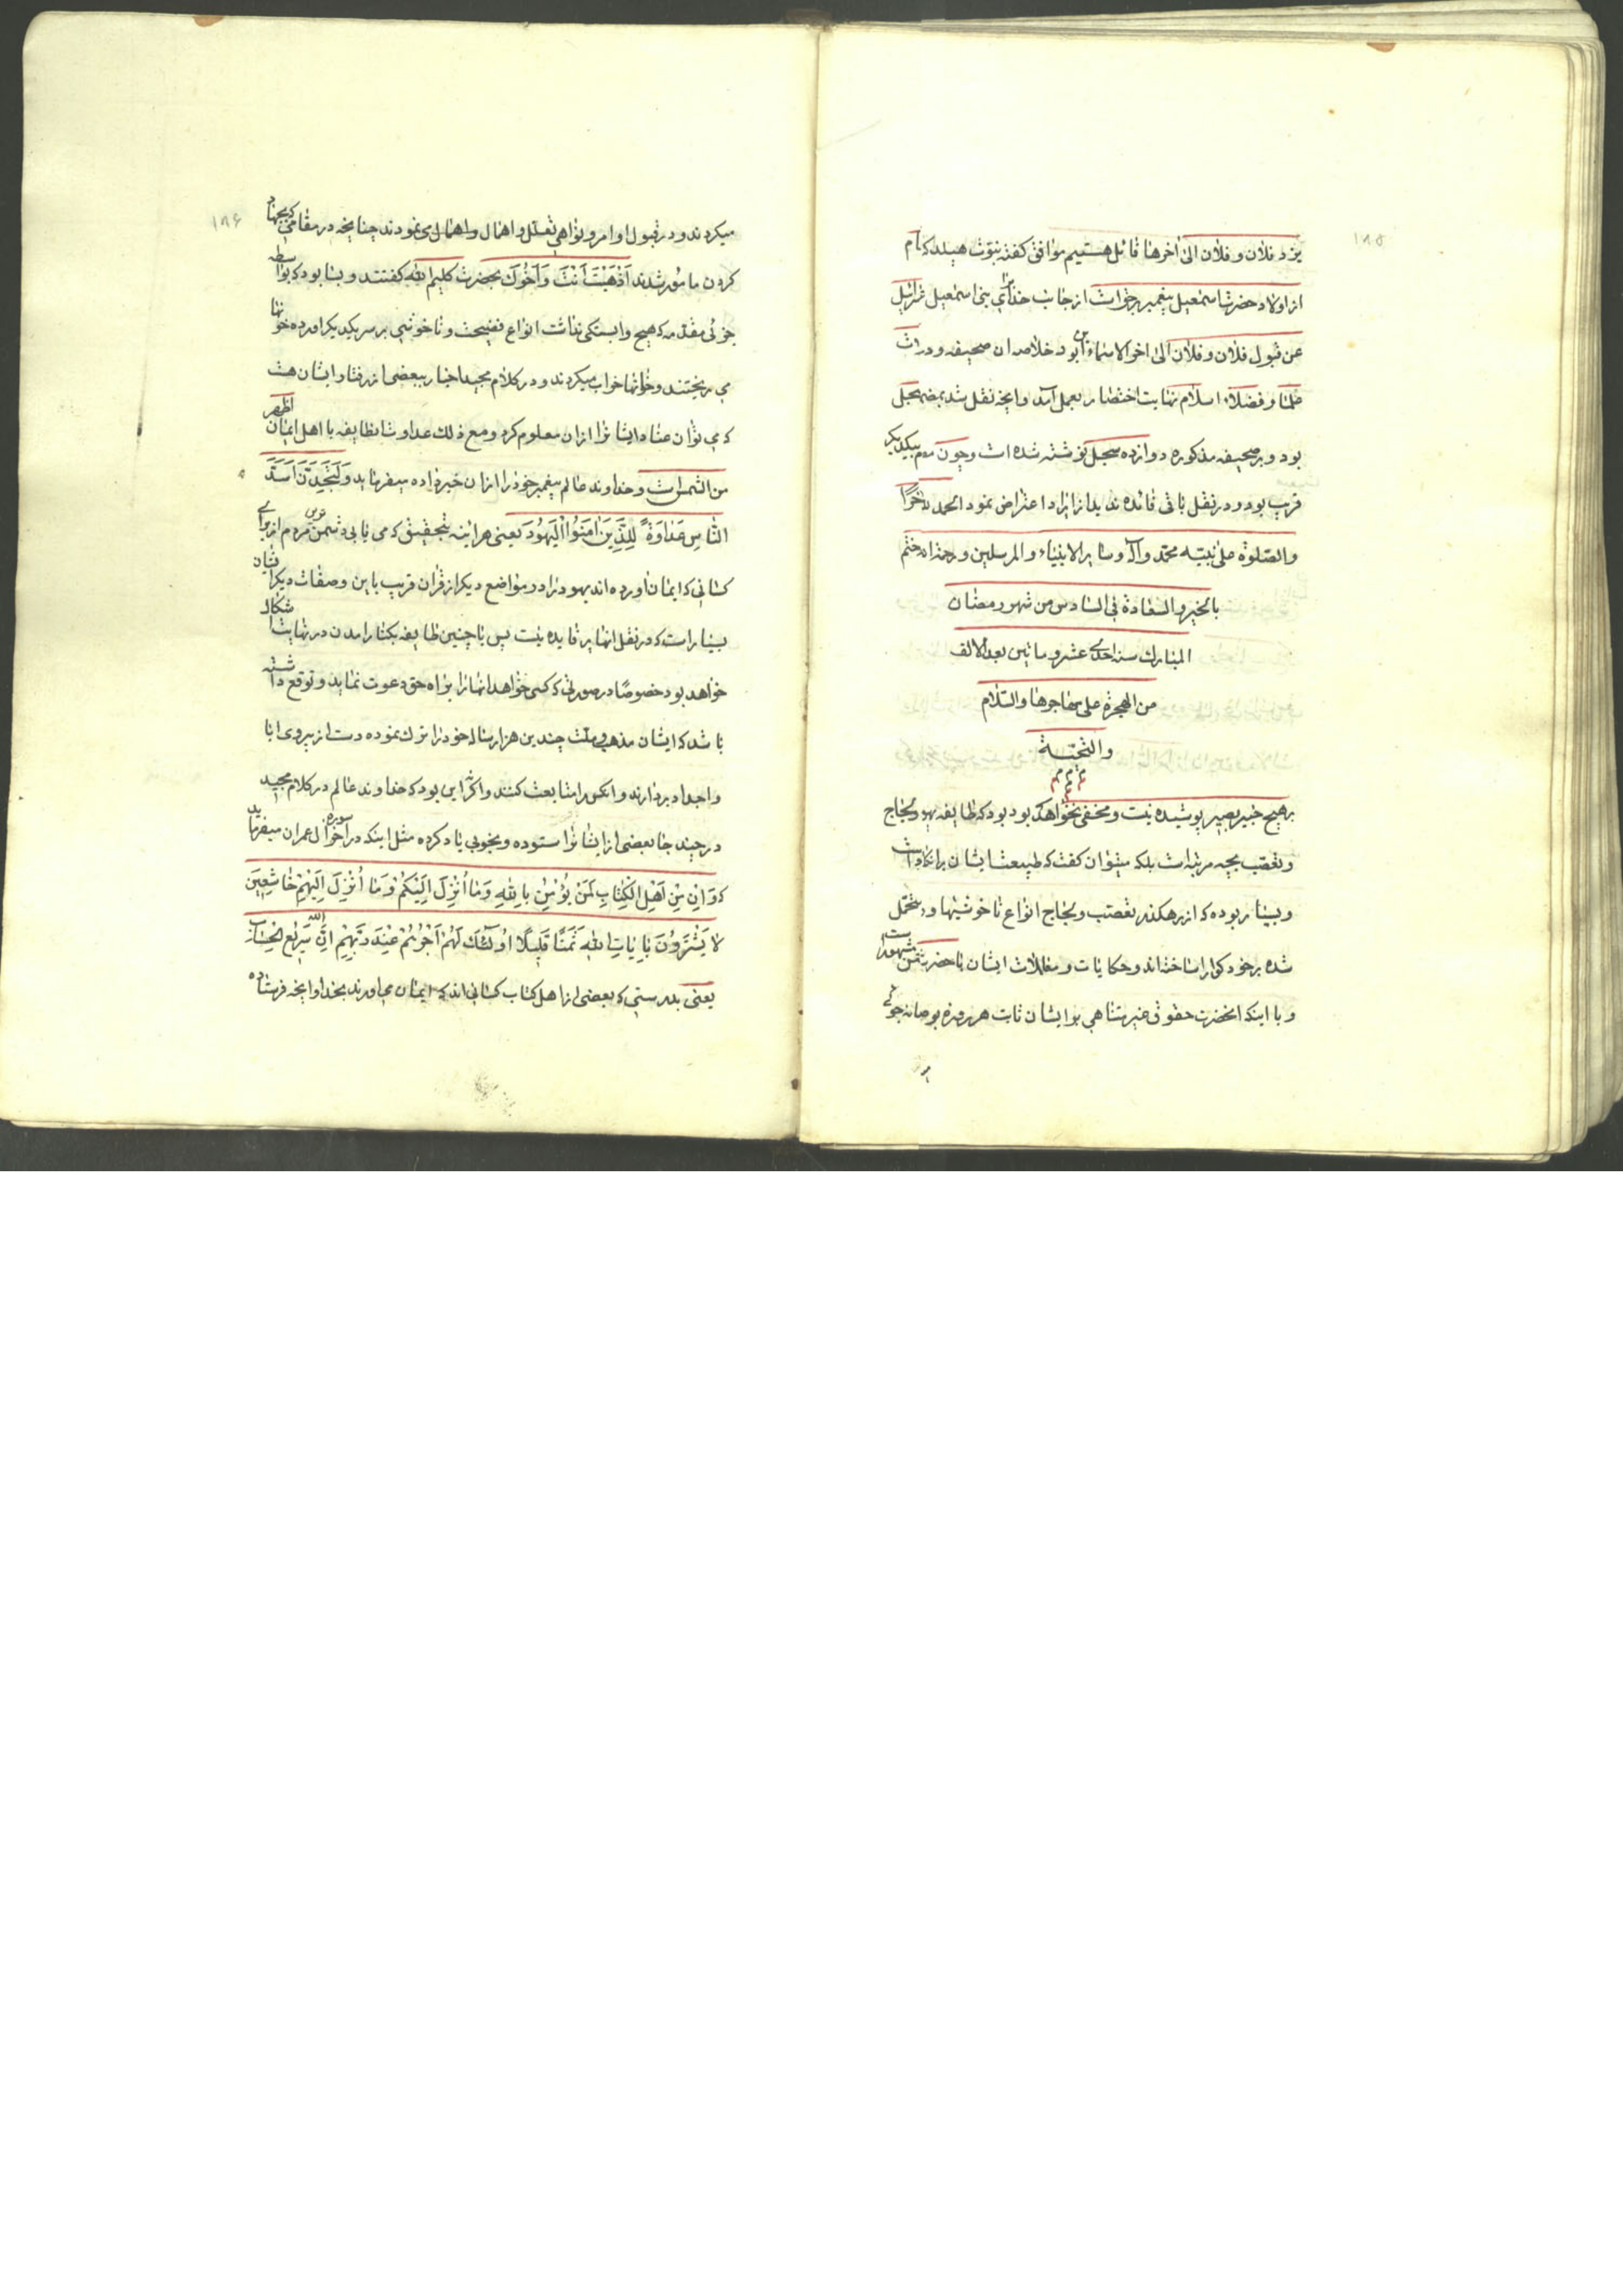 ۱۸۵
یزد فلان و فلان الی اخرها قائل هستیم موافق کفته نبوّت هیلد که نام
از اولاد حضرت اسمعیل پیغمبر برخواست از جانب خدای برای بنی اسمعیل
عن قبول فلان و فلان الی اخر الاسماء پس این بود خلاصه ان صحیفه و در ان
علما و فضلاء اسلام نهایت اختصار بعمل آمد و انچه نقل شد سجل
بود و بر صحیفه مذکوره دوازده سجل نوشته شده است و چون بیکدیکر
قریب بود و در نقل باقی فائده ندید از ایراد اعتراض نمود الحمد لله
والصلوة علی نبیّه محمد و آله و سایر الانبیاء و المرسلین و ختم
بالخیر و السعادة فی السادس من شهور رمضان
المبارک سنه احدی عشر و ماتین بعد الالف
من الهجرة علی مهاجرها و السّلام
و التحیّة
بر هیچ خبیر بصیر پوشیده نیست و مخفی نخواهد بود که طایفه یهود لجاج
و تعصّب بچه مرتبه است بلکه میتوان کفت که طبیعت ایشان بر انکار است
و بسیار بوده که از رهکذر تعصّب و لجاج انواع ناخوشیها و متحمّل
شده بر خود کوارا ساخته اند و حکایات و مقالات ایشان با حضرت مشهور است
و با اینکه انحضرت حقوق غیر متناهی بر ایشان ثابت هر روزه
۱۸۶
میکردند و در قبول اوامر و نواهی تعلّل و اهمال و اهمال می نمودند چنانچه در مقامی که بجهاد
کردن مامور شدند اَذْهَبْتَ اَنْتَ وَ اَخُوکَ بحضرت کلیم الله کفتند و بسا بود که بواسطه
جزئی مقدّمه که هیچ وابستکی نداشت انواع فضیحت و ناخوشی بر سر یکدیکر اورده خونها
می ریختند و خانها خراب میکردند و در کلام مجید اخبار ببعضی از رفتار ایشان هست
که می توان عناد ایشانرا از ان معلوم کرد و مع ذلک عداوت انطایفه با اهل ایمان اظهر
من الشمس است و خداوند عالم پیغمبر خود را از ان خبر داده میفرماید وَلَتَجِدَنَّ اَشَدَّ
النّاسِ عَداوَةً لِلَّذِینَ امَنُوا الْیَهُودَ یعنی هر اینه بتحقیق که می یابی دشمن ترین مردم از برای
کسانی که ایمان اورده اند یهود را و در مواضع دیکر از قران قریب باین وصفات دیکر ایشان
بسیار است که در نقل انها پر فایده نیست پس با چنین طایفه بکنار امدن در نهایت اشکال
خواهد بود خصوصًا در صورتی که کسی خواهد انها را براه حق دعوت نماید و توقع داشته
باشد که ایشان مذهب و ملّت چندین هزار ساله خود را ترک نموده دست از پیروی ابا
و اجداد بردارند و انکس را متابعت کنند و اکثر این بود که خداوند عالم در کلام مجید
در چند جا بعضی از ایشانرا ستوده و بخوبی یاد کرده مثل اینکه در اخر سوره ال عمران میفرماید
که وَ اِنَّ مِنْ اَهْلِ الْکِتابِ لَمَنْ یُؤْمِنُ بِاللهِ وَ مَا اُنْزِلَ اِلَیْکُمْ وَ مَا اُنْزِلَ اِلَیْهِمْ خاشِعِینَ
لا یَشْتَرُونَ بِایاتِ اللهِ ثَمَنًا قَلِیلًا اُولئِکَ لَهُمْ اَجْرُهُمْ عِنْدَ رَبِّهِمْ اِنَّ اللهَ سَرِیعُ الحِساب
یعنی بدرستی که بعضی از اهل کتاب کسانی اند که ایمان می اورند بخدا و انچه فرستاده